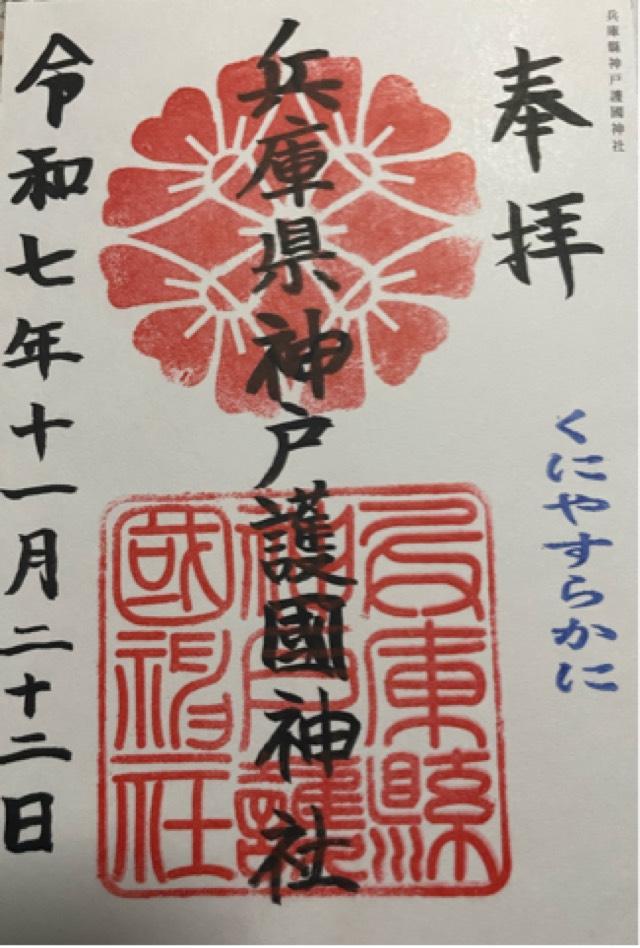 兵庫縣神戸護國神社
奉拝
くにやすらかに
兵庫県神戸護國神社
兵庫縣
神戸護
國神社
令和七年十一月二十二日